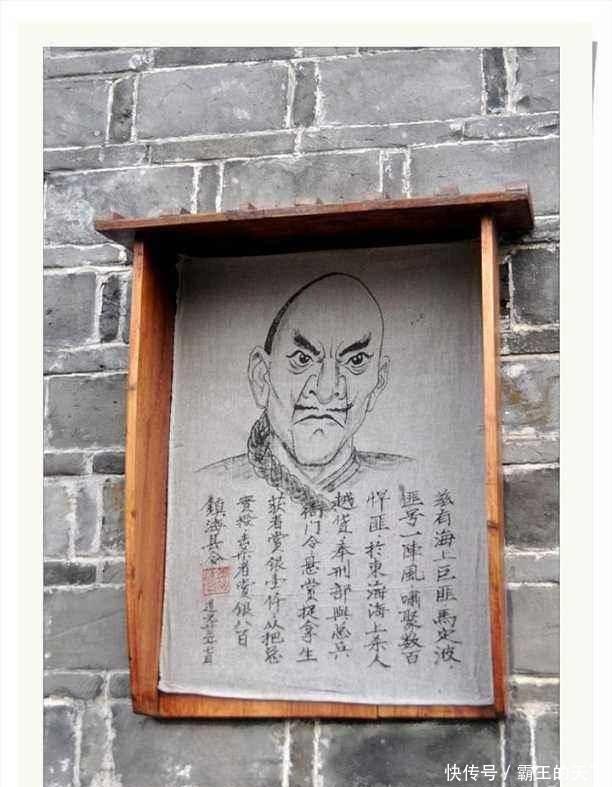 兹有海上巨匪馬定波，
匪号一陣風嘯聚数百
悍匪於東海海上杀人
越货奉刑部與总兵
衙门令悬赏捉拿生
获者赏银壹仟从把总
實授击杀者赏银八百
鎮海县令
快传号 / 霸王的天